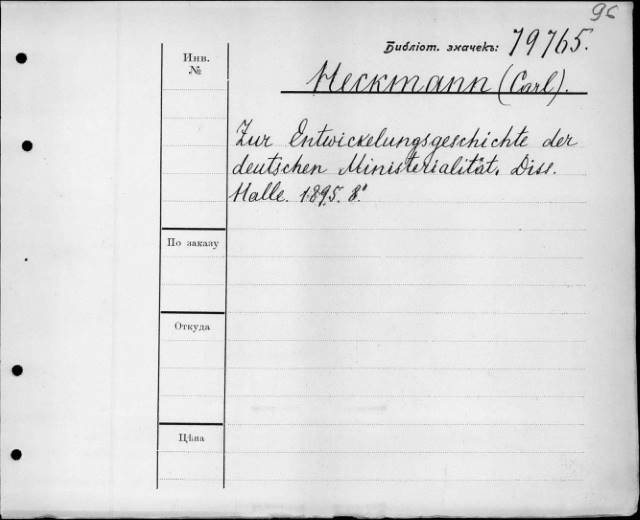 96
Библіот. значекъ: 79765.
Инв.
№
Heckmann (Carl).
Zur Entwickelungsgeschichte der
deutschen Ministerialität. Diss.
Halle. 1895. 8°
По заказу
Откуда
Цѣна